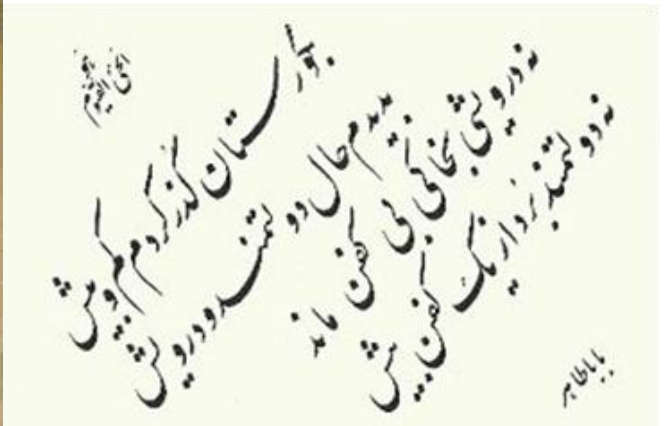 بگورستان گذر کردم کم و بیش
بدیدم حال دولتمند و درویش
نه درویشی بخاکی بی کفن ماند
نه دولتمند برد از یک کفن بیش
باباطاهر